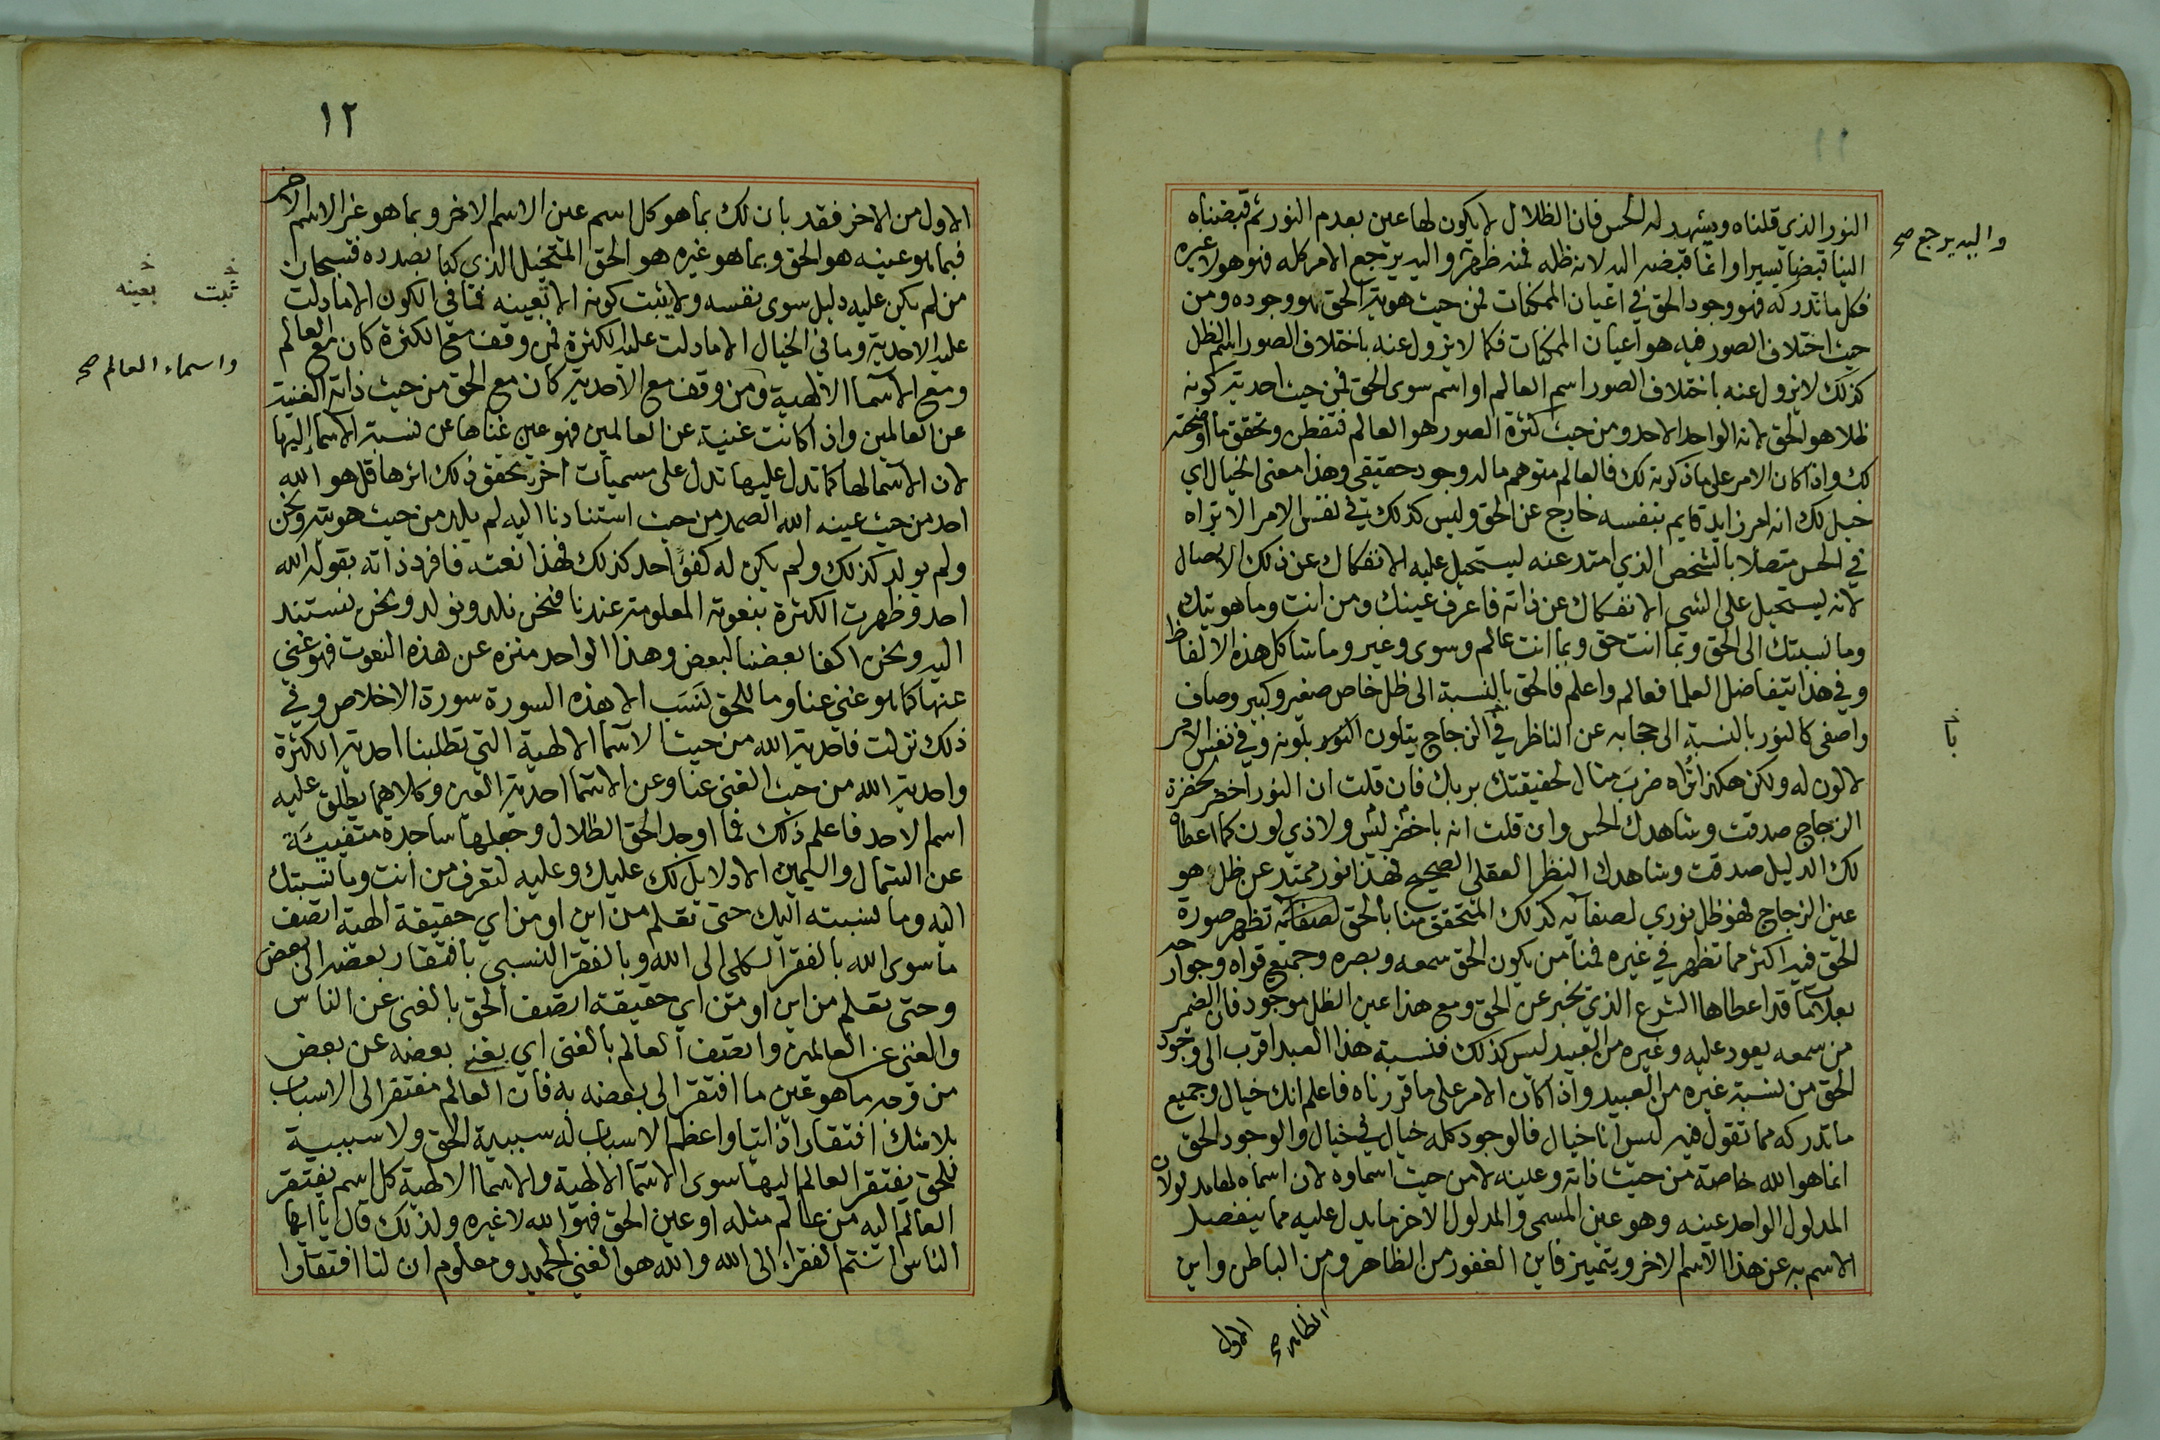 النور الذي قلناه ويشهد له الحس فان الظلال لا يكون لها عين بعدم النور ثم قبضناه
الينا قبضا يسيرا وانما قبضه اليه لانه ظله فمنه ظهر واليه يرجع الامر كله فهو هو لا غيره
واليه يرجع صح
فكل ما تدركه فهو وجود الحق في اعيان الممكنات فمن حيث هوية الحق هو وجوده ومن
حيث اختلاف الصور فيه هو اعيان الممكنات فكما لا يزول عنه باختلاف الصور اسم الظل
كذلك لا يزول عنه باختلاف الصور اسم العالم او اسم سوى الحق فمن حيث احدية كونه
ظلا هو الحق لانه الواحد الاحد ومن حيث كثرة الصور هو العالم فتفطن وتحقق ما اوضحته
لك واذا كان الامر على ما ذكرته لك فالعالم متوهم ما له وجود حقيقي وهذا معنى الخيال اي
خيل لك انه امر زايد قايم بنفسه خارج عن الحق وليس كذلك في نفس الامر الا تراه
في الحس متصلا بالشخص الذي امتد عنه ليستحيل عليه الانفكاك عن ذلك الاتصال
لانه ليستحيل على الشي الانفكاك عن ذاته فاعرف عينك ومن انت وما هويتك
وما نسبتك الى الحق وبما انت حق وبما انت عالم وسوى وغير وما شاكل هذه الالفاظ
وفي هذا يتفاضل العلما فعالم واعلم فالحق بالنسبة الى ظل خاص صغير وكبير وصاف
واصفى كالنور بالنسبة الى حجابه عن الناظر في الزجاج يتلون النور بلونه وفي نفس الامر
با
لا لون له ولكن هكذا تُراه ضربَ مثال لحقيقتك بربك فان قلت ان النور اخضر لخضرة
الزجاج صدقت وشاهدك الحس وان قلت انه باخضر ليس ولا ذي لون كما اعطاه
لك الدليل صدقت وشاهدك النظر العقلي الصحيح فهذا نور ممتد عن ظل هو
عين الزجاج فهو ظل نوري لصفائه كذلك المتحقق منا بالحق لصفائه تظهر صورة
الحق فيه اكثر مما تظهر في غيره فمنا من يكون الحق سمعه وبصره وجميع قواه وجوارحه
بعلامات قد اعطاها الشرع الذي يخبر عن الحق ومع هذا عين الظل موجود فان الضمير
من سمعه يعود عليه وغيره من العبيد ليس كذلك فنسبة هذا العبد اقرب الى وجود
الحق من نسبة غيره من العبيد واذا كان الامر على ما قررناه فاعلم انك خيال وجميع
ما تدركه مما تقول فيه ليس انا خيال فالوجود كله خيال في خيال والوجود الحق
انما هو الله خاصة من حيث ذاته وعينه لا من حيث اسماوه لان اسماه لها مدلولان
المدلول الواحد عينه وهو عين المسمى والمدلول الاخر ما يدل عليه مما ينفصل
الاسم به عن هذا الاسم الاخر ويتميز فاين الغفور من الظاهر ومن الباطن واين
الظاهر صح
الاول
١٢
الاول من الاخر فقد بان لك بما هو كل اسم عين الاسم الاخر وبما هو غير الاسم الاخر
فبما هو عينه هو الحق وبما هو غيره هو الحق المتخيل الذي كنا بصدده فسبحان
من لم يكن عليه دليل سوى نفسه ولا يثبت كونه الا بعينه فما في الكون الا ما دلت
ثبت
بعينه
عليه الاحدية وما في الخيال الا ما دلت عليه الكثرة فمن وقف مع الكثرة كان مع العالم
واسماء العالم صح
ومع الاسما الالهية ومن وقف مع الاحدية كان مع الحق من حيث ذاته الغنية
عن العالمين واذا كانت غنية عن العالمين فهو عين غناها عن نسبة الاسما اليها
لان الاسما لها كما تدل عليها تدل على مسميات اخر يحقق ذلك اثرها قل هو الله
احد من حيث عينه الله الصمد من حيث استنادنا اليه لم يلد من حيث هويته ونحن
ولم يولد كذلك ولم يكن له كفوا احد كذلك فهذا نعته فافرد ذاته بقوله الله
احد وظهرت الكثرة بنعوته المعلومة عندنا فنحن نلد ونولد ونحن نستند
اليه ونحن اكفا بعضنا لبعض وهذا الواحد منزه عن هذه النعوت فهو غني
عنها كما هو غني عنا وما للحق نَسَب الا هذه السورة سورة الاخلاص وفي
ذلك نزلت فاحدية الله من حيث الاسما الالهية التي تطلبنا احدية الكثرة
واحدية الله من حيث الغنى عنا وعن الاسما احدية العين وكلاهما يطلق عليه
اسم الاحد فاعلم ذلك فما اوجد الحق الظلال وجعلها ساجدة متفيئة
عن الشمال واليمين الا دلايل لك عليك وعليه لتعرف من انت وما نسبتك
اليه وما نسبته اليك حتى تعلم من اين او من اي حقيقة الهية اتصف
ما سوى الله بالفقر الكلي الى الله وبالفقر النسبي بافتقار بعضه الى بعض
وحتى تعلم من اين او من اي حقيقة اتصف الحق بالغنى عن الناس
والغنى عن العالمين واتصف العالم بالغنى اي بغنى بعضه عن بعض
من وجه ما هو عين ما افتقر الى بعضه به فان العالم مفتقر الى الاسباب
بلا شك افتقارا ذاتيا واعظم الاسباب له سببية الحق ولا سببية
للحق يفتقر العالم اليها سوى الاسما الالهية والاسما الالهية كل اسم يفتقر
العالم اليه من عالم مثله او عين الحق فهو الله لا غيره ولذلك قال يا ايها
الناس انتم الفقراء الى الله والله هو الغني الحميد ومعلوم ان لنا افتقارا